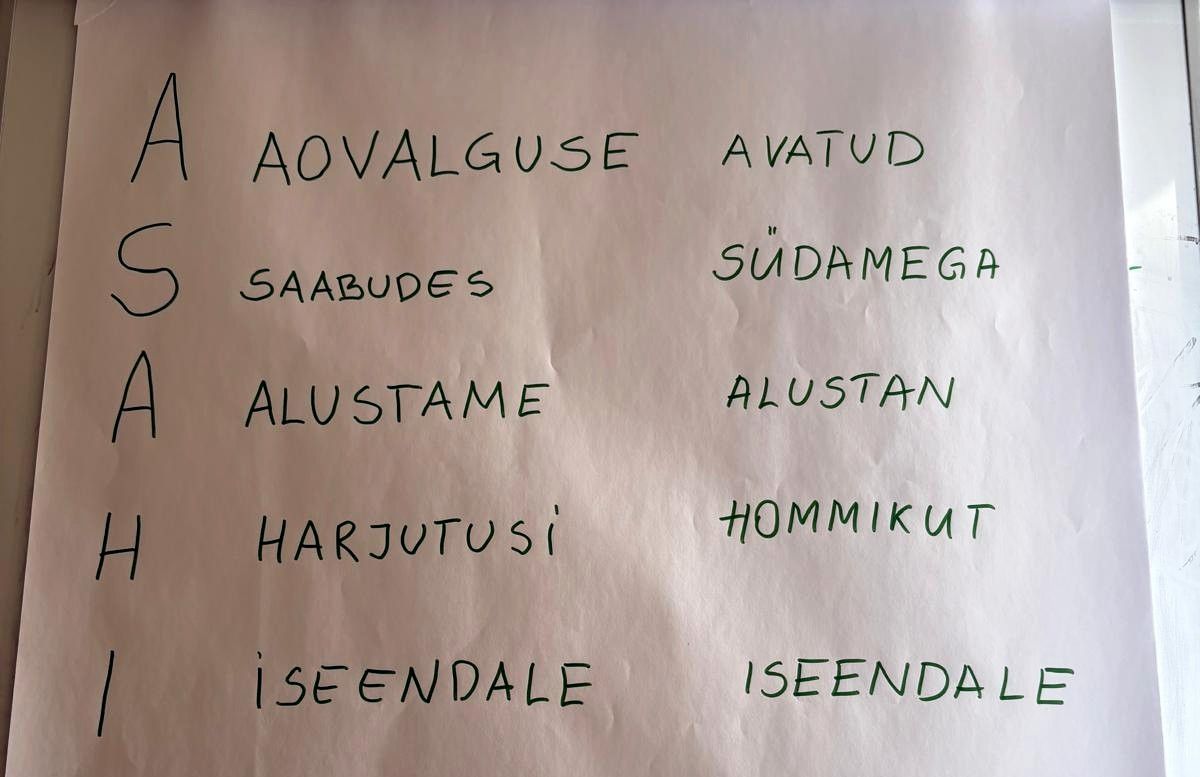 A AOVALGUSE AVATUD
S SAABUDES SÜDAMEGA
A ALUSTAME ALUSTAN
H HARJUTUSi HOMMIKUT
I iSEENDALE ISEENDALE